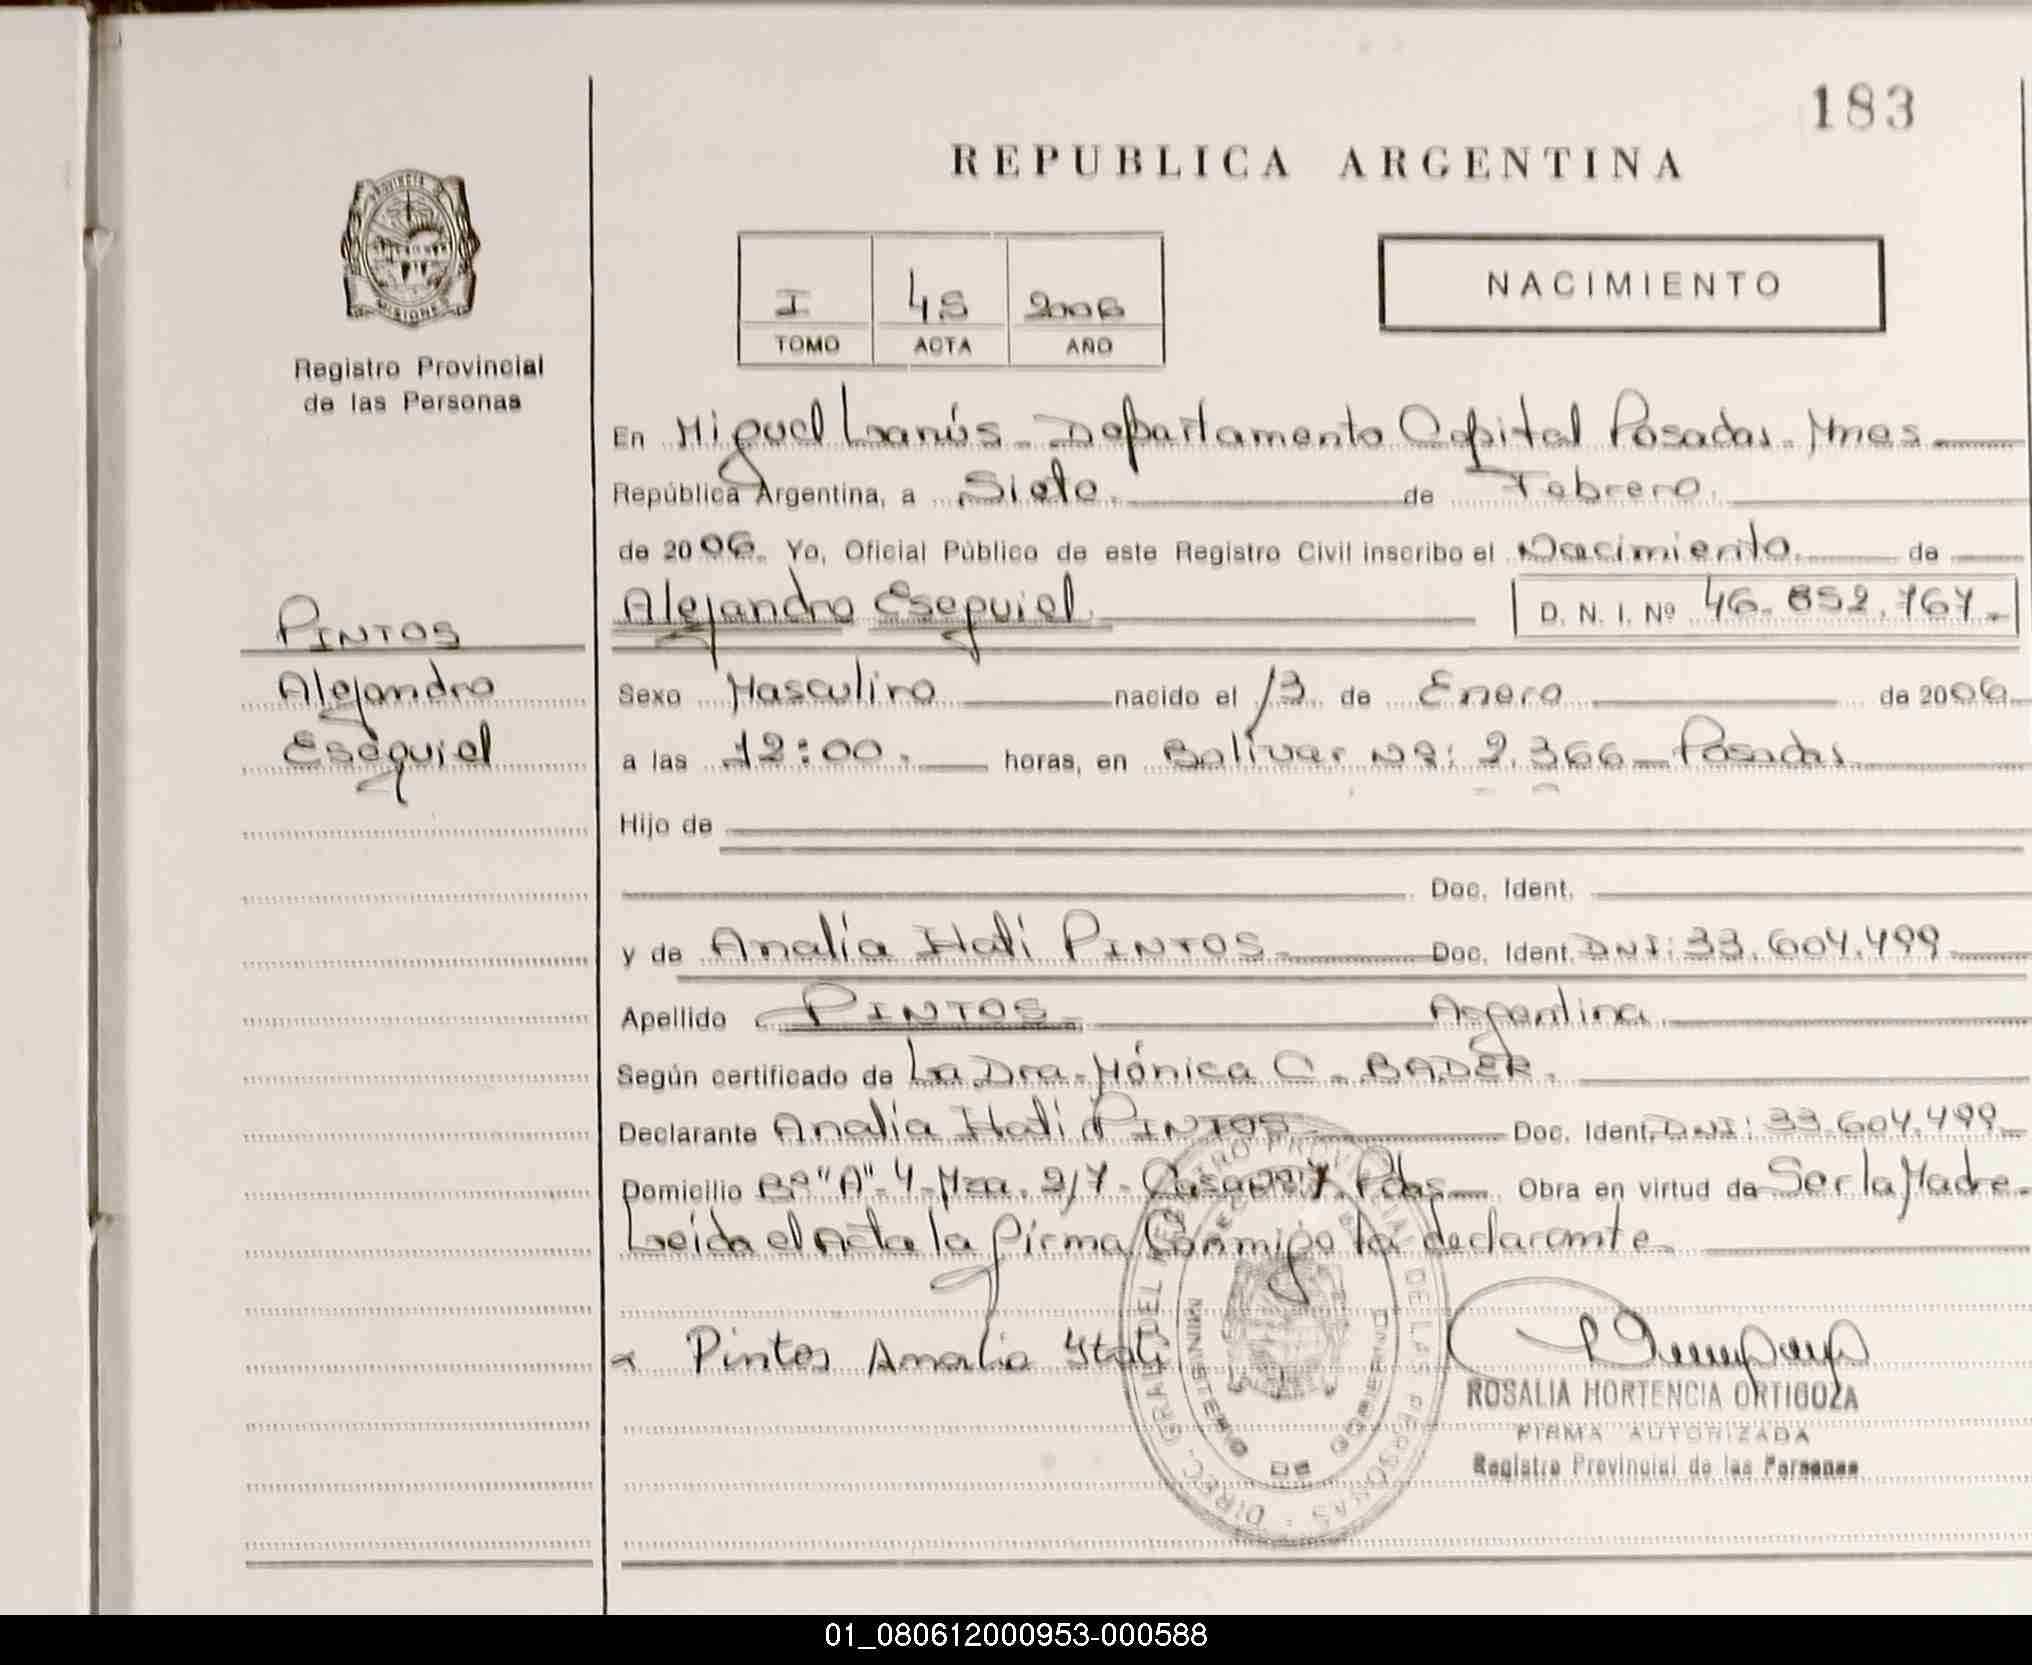 183
REPUBLICA ARGENTINA
PROVINCIA DE
MISIONES
Registro Provincial
de las Personas
I 45 2006
TOMO ACTA AÑO
NACIMIENTO
En Miguel Lanús - Departamento Capital Posadas - Mnes
República Argentina, a Siete de Febrero.
de 2006. Yo, Oficial Público de este Registro Civil inscribo el Nacimiento. de
PINTOS
Alejandro Esequiel. D. N. I. Nº 46.852.767.-
Alejandro
Sexo Masculino nacido el 13 de Enero de 2006
Esequiel
a las 12:00. horas, en Bolívar Nº: 2.366 - Posadas
Hijo de
Doc. Ident.
y de Analía Itatí PINTOS. Doc. Ident. DNI: 33.604.499
Apellido PINTOS Argentina
Según certificado de La Dra. Mónica C. BADER.
Declarante Analía Itatí PINTOS Doc. Ident. DNI: 33.604.499
Domicilio Bº "A"-4-Mza. 2/7- Casa Pdas Obra en virtud de Ser la Madre.
Leída el Acta la firma Conmigo la declarante
Pintos Analia Itati
DIREC. GRAL DEL REGISTRO PROVINCIAL DE LAS PERSONAS
MINISTERIO DE GOBIERNO
ROSALIA HORTENCIA ORTIGOZA
FIRMA AUTORIZADA
Registro Provincial de las Personas
01_080612000953-000588